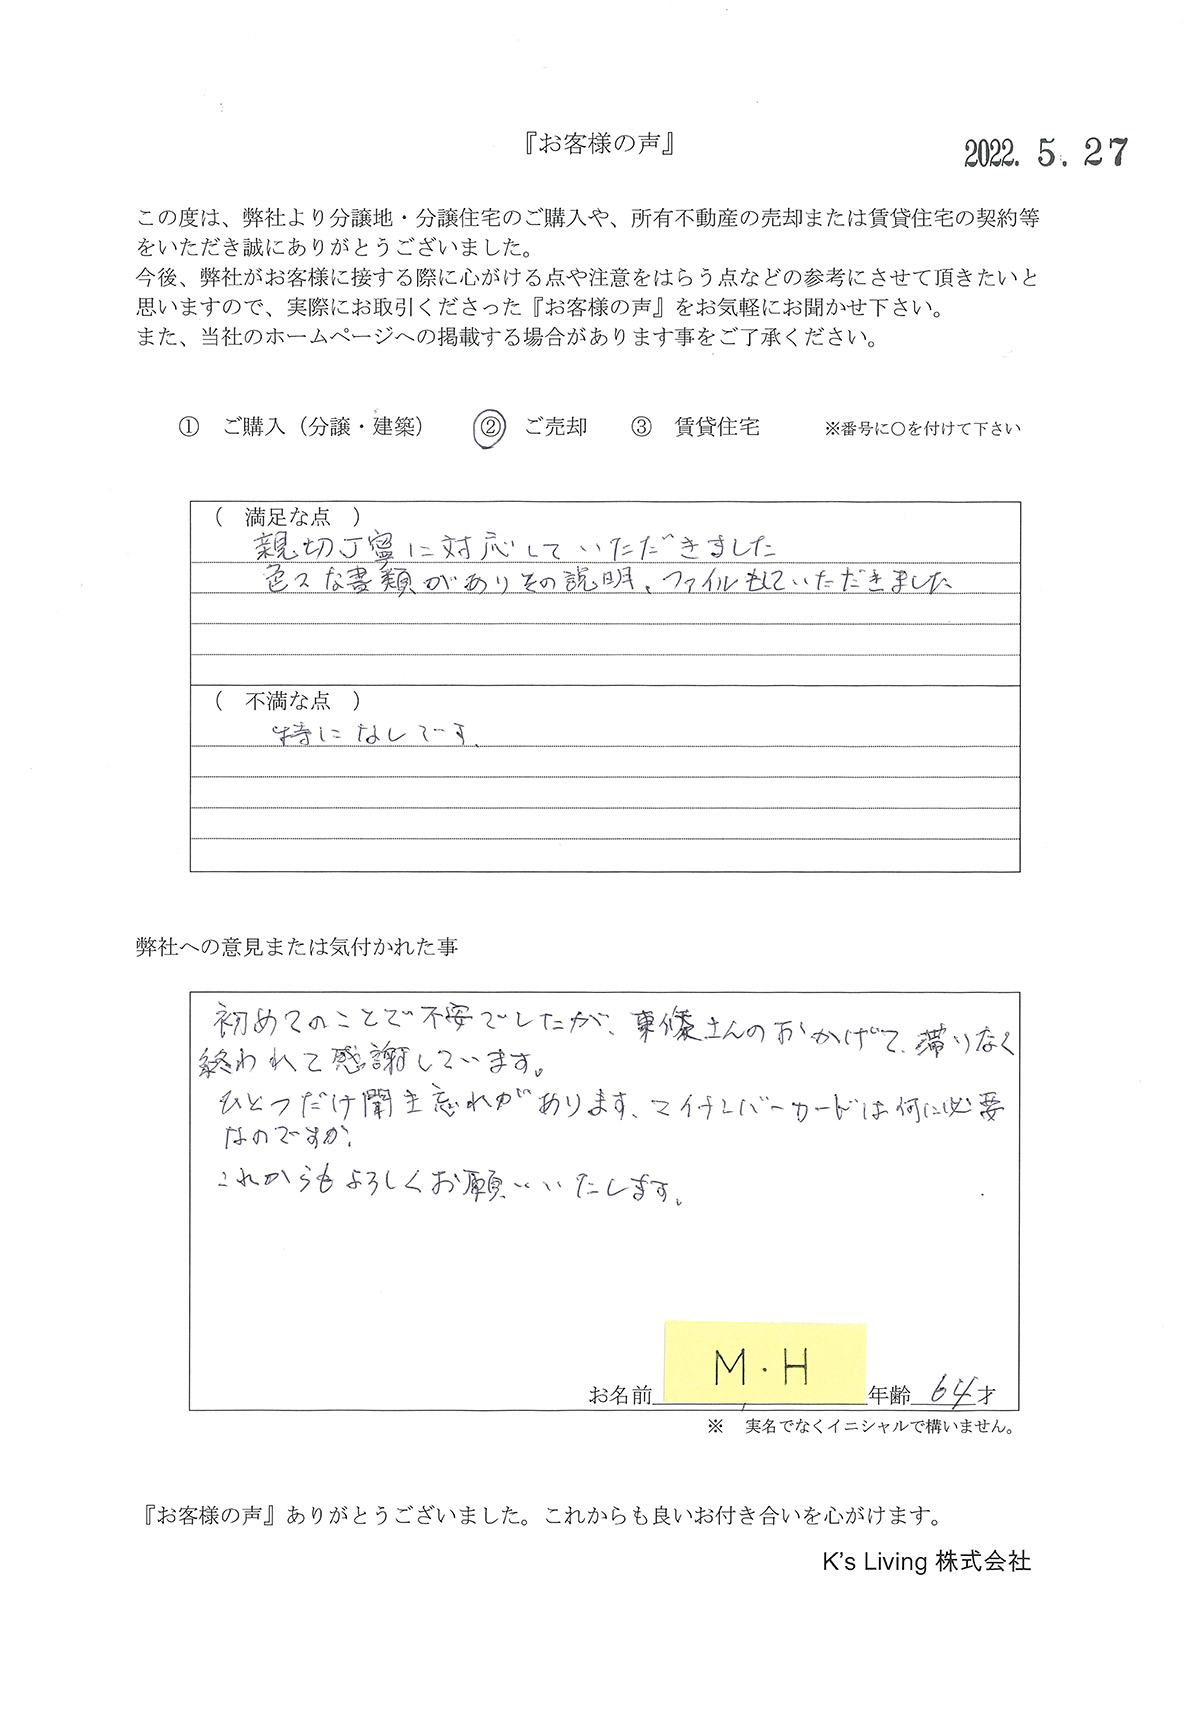 『お客様の声』
2022. 5. 27
この度は、弊社より分譲地・分譲住宅のご購入や、所有不動産の売却または賃貸住宅の契約等
をいただき誠にありがとうございました。
今後、弊社がお客様に接する際に心がける点や注意をはらう点などの参考にさせて頂きたいと
思いますので、実際にお取引くださった『お客様の声』をお気軽にお聞かせ下さい。
また、当社のホームページへの掲載する場合があります事をご了承ください。
① ご購入（分譲・建築） ② ご売却 ③ 賃貸住宅 ※番号に○を付けて下さい
（ 満足な点 ）
親切丁寧に対応していただきました
色々な書類がありその説明、ファイルもしていただきました
（ 不満な点 ）
特になしです。
弊社への意見または気付かれた事
初めてのことで不安でしたが、東條さんのおかげで、滞りなく
終われて感謝しています。
ひとつだけ聞き忘れがあります、マイナンバーカードは何に必要
なのですか。
これからもよろしくお願いいたします。
お名前 M・H 年齢 64才
※ 実名でなくイニシャルで構いません。
『お客様の声』ありがとうございました。これからも良いお付き合いを心がけます。
K's Living 株式会社